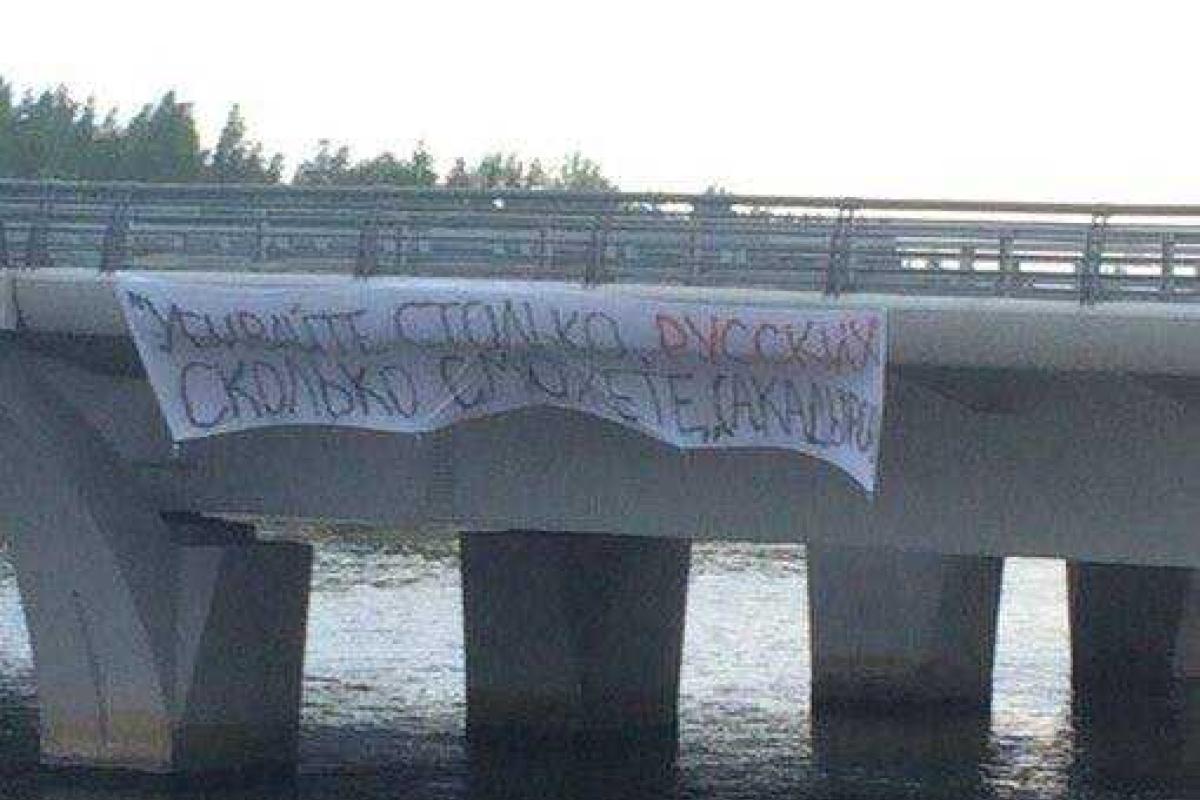 "УБИВАЙТЕ СТОЛЬКО РУССКИХ
СКОЛЬКО СМОЖЕТЕ" А.КАДЫРОВ